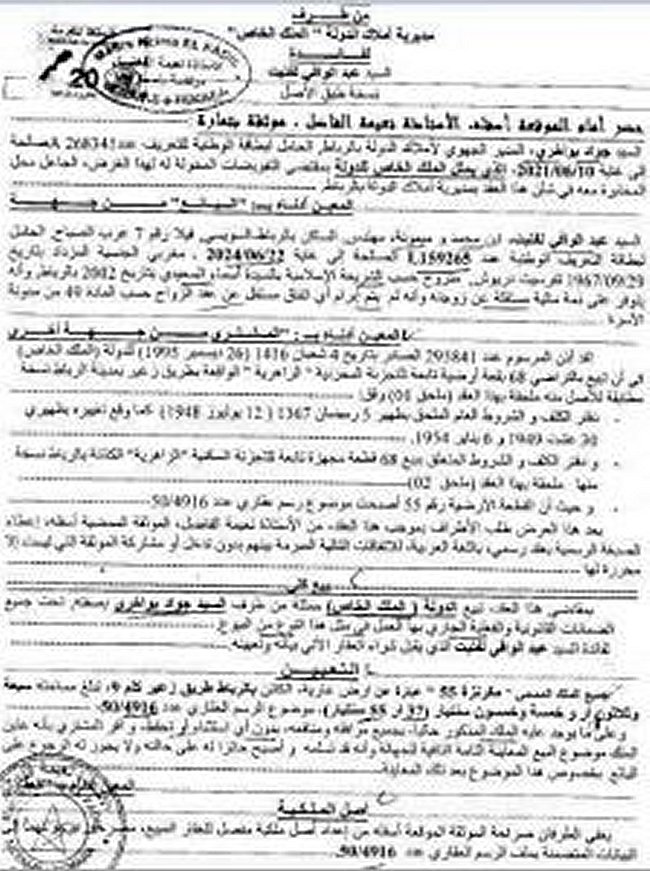 من طرف
مديرية أملاك الدولة " الملك الخاص"
لفائدة
السيد عبد الوافي لفتيت
نسخة طبق الأصل
20
حضر أمام الموقعة أسفله، الأستاذة نعيمة الفاضل، موثقة بتمارة
السيد جواد بواخري، المدير الجهوي لأملاك الدولة بالرباط الحامل لبطاقة الوطنية للتعريف عدد A268341 صالحة
إلى غاية 2021/06/10، الذي يمثل الملك الخاص للدولة بمقتضى التفويضات المخولة له لهذا الغرض، الجاعل محل
المخابرة معه في شأن هذا العقد بمديرية أملاك الدولة بالرباط
المعين أدناه بـ: "البائع" من جهة
السيد عبد الوافي لفتيت، ابن محمد و ميمونة، مهندس، الساكن بالرباط السويسي، فيلا رقم 7 عرب الصباح، الحامل
لبطاقة التعريف الوطنية عدد الصالحة إلى غاية 2024/06/22، مغربي الجنسية المزداد بتاريخ
1967/09/29 متزوج حسب الشريعة الإسلامية بالسيدة أسماء بتاريخ 2002 بالرباط وأنه
يتوفر على ذمة مالية مستقلة عن زوجته وأنه لم يتم إبرام أي اتفاق مستقل عن عقد الزواج حسب المادة 49 من مدونة
الأسرة
المعين أدناه بـ: "المشتري" من جهة أخرى
لقد أذن المرسوم عدد 295841 الصادر بتاريخ 4 شعبان 1416 (26 ديسمبر 1995) للدولة (الملك الخاص)
في أن تبيع بالتراضي 68 بقعة أرضية تابعة للتجزئة "الزاهرية" الواقعة بطريق زعير بمدينة الرباط نسخة
مطابقة للأصل منه ملحقة بهذا العقد (ملحق 01) وفق:
- دفتر الكلف و الشروط العام الملحق بظهير 5 رمضان 1367 (12 يوليوز 1948) كما وقع تغييره بظهيري
30 غشت 1949 و 6 يناير 1954.
- و دفتر الكلف و الشروط المتعلق ببيع 68 قطعة مجهزة تابعة للتجزئة السكنية "الزاهرية" الكائنة بالرباط نسخة
منها ملحقة بهذا العقد (ملحق 02)
- و حيث أن القطعة الأرضية رقم 55 أصبحت موضوع رسم عقاري عدد 50/4916
بعد هذا العرض طلب الأطراف بموجب هذا العقد، من الأستاذة نعيمة الفاضل، الموثقة الممضية أسفله، إعطاء
الصبغة الرسمية بعقد رسمي، باللغة العربية، للاتفاقات التالية المبرمة بينهم بدون تدخل أو مشاركة الموثقة التي ليست إلا
محررة لها
بيع
بمقتضى هذا العقد، تبيع الدولة (الملك الخاص) ممثلة من طرف السيد جواد بواخري بصفته، تحت جميع
الضمانات القانونية والفعلية الجاري بها العمل في مثل هذا النوع من البيوع
لفائدة السيد عبد الوافي لفتيت الذي يقبل شراء العقار الآتي بيانه وتعيينه
التعيين
جميع الملك المسمى " 55" عبارة عن أرض عارية، الكائن بالرباط طريق زعير كلم 9، تبلغ مساحته سبعة
وثلاثون آر و خمسة وخمسون سنتيار (37 آر 55 سنتيار)، موضوع الرسم العقاري عدد 50/4916
وعلى ما يوجد عليه الملك المذكور حاليا، بجميع مرافقه ومنافعه، بدون أي استثناء أو تحفظ، و أقر المشتري بأنه عاين
الملك موضوع البيع المعاينة التامة النافية للجهالة وأنه قد تسلمه و أصبح حائزا له على حالته ولا يجوز له الرجوع على
البائع بخصوص هذا الموضوع بعد تلك المعاينة.
أصل الملكية
يعفي الطرفان صراحة الموثقة الموقعة أسفله من إعداد أصل ملكية مفصل للعقار المبيع،
البيانات المتضمنة بملف الرسم العقاري عدد 50/4916